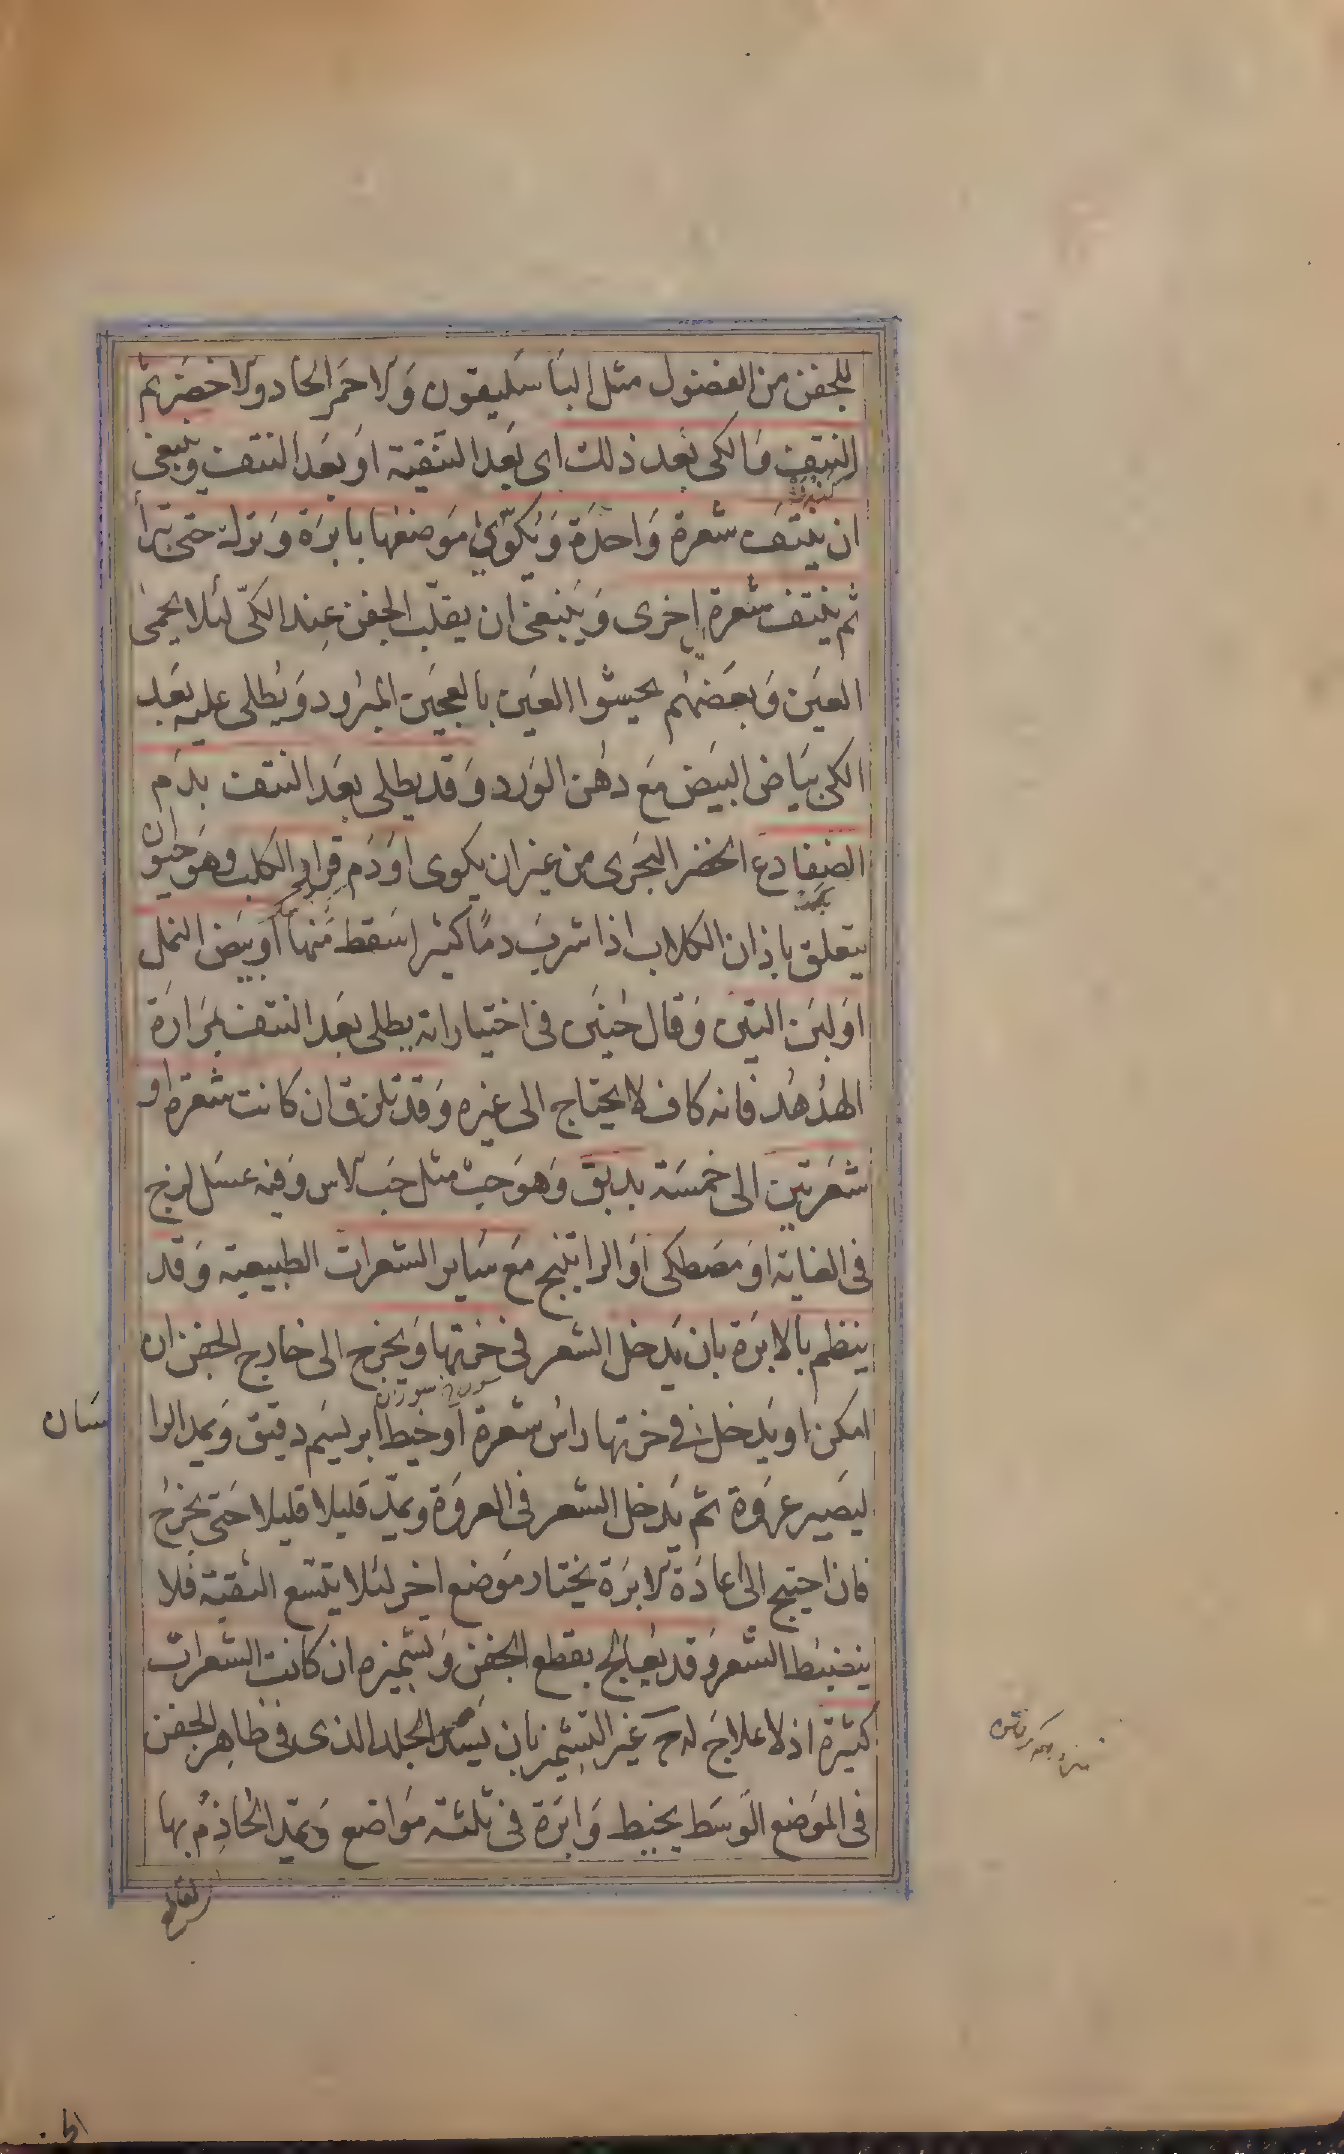 للجفن من الفضول مثل الباسليقون وَالاحمَر الحاد والاخضر ثم
النتف وَالكى بَعد ذلك اى بَعد التنقية او بَعد النتف وينبغى
ان ينتف شعرة وَاحدَة وَيكوىٰ موَضعها بابرَة وَيترك حتى تبرأ
ثم ينتف شعرة اخرى وَينبغى ان يقلب الجفن عند الكىّ لئلا يحمى
العيَن وَبعضهم يحيشوا العيَن بالعجيَن المبرود وَيُطلى عليه بَعد
الكى بيَاض البيَض مَع دهُن الوَرد وَقد يطلى بعَد النتف بدَم
الضفادع الخضر البحَرى من غير ان يكوى اوَدَم قراد الكلب وهوَ حيوان
يتعلق باذان الكلاب اذا شربَ دمًا كثيرا سَقط منها اوَبيَض النمل
اوَلبَن التين وَقال حنيَن فى اختياراته يطلى بعَد النتف بمرَارَة
الهدُهُد فانه كاف لا يحتاج الى غيره وَقد تلزق ان كانت شعرة او
شعَرتين الى خمسَة بدبق وَهوَ حب مثل حَب الاس وَفيه عسَل لزج
فى الغاية اوَ مصَطكى اوَ الراتينج مَع سَاير الشعرات الطبيعية وَقد
ينظم بالابرَة بان يَدخل الشعر فى خرتها وَيخرج الى خارج الجفن ان
امكن اويَدخل فى خرتها راس شعرة اوَخيط ابريسَم دقيق وَيمد الرا
سَان
ليصَير عروَة ثم يَدخل الشعر فى العروَة ويمدّ قليلا قليلا حَتى يخرج
فان احتيج الى اعادَة الابرَة يختار موَضع اخر لئلا يتسَع الثقبة فَلا
ينضبط الشعر وَقد يعالج بقطع الجفن وَتشميره ان كانت الشعرات
كثيَرة اذ لا علاج له ح غير التشمير بان يشد الجلد الذى فى ظاهر الجفن
فى الموَضع الوَسَط بخيط وَابرَة فى ثلثة مَواضع وَيمدّ الخاذم بها